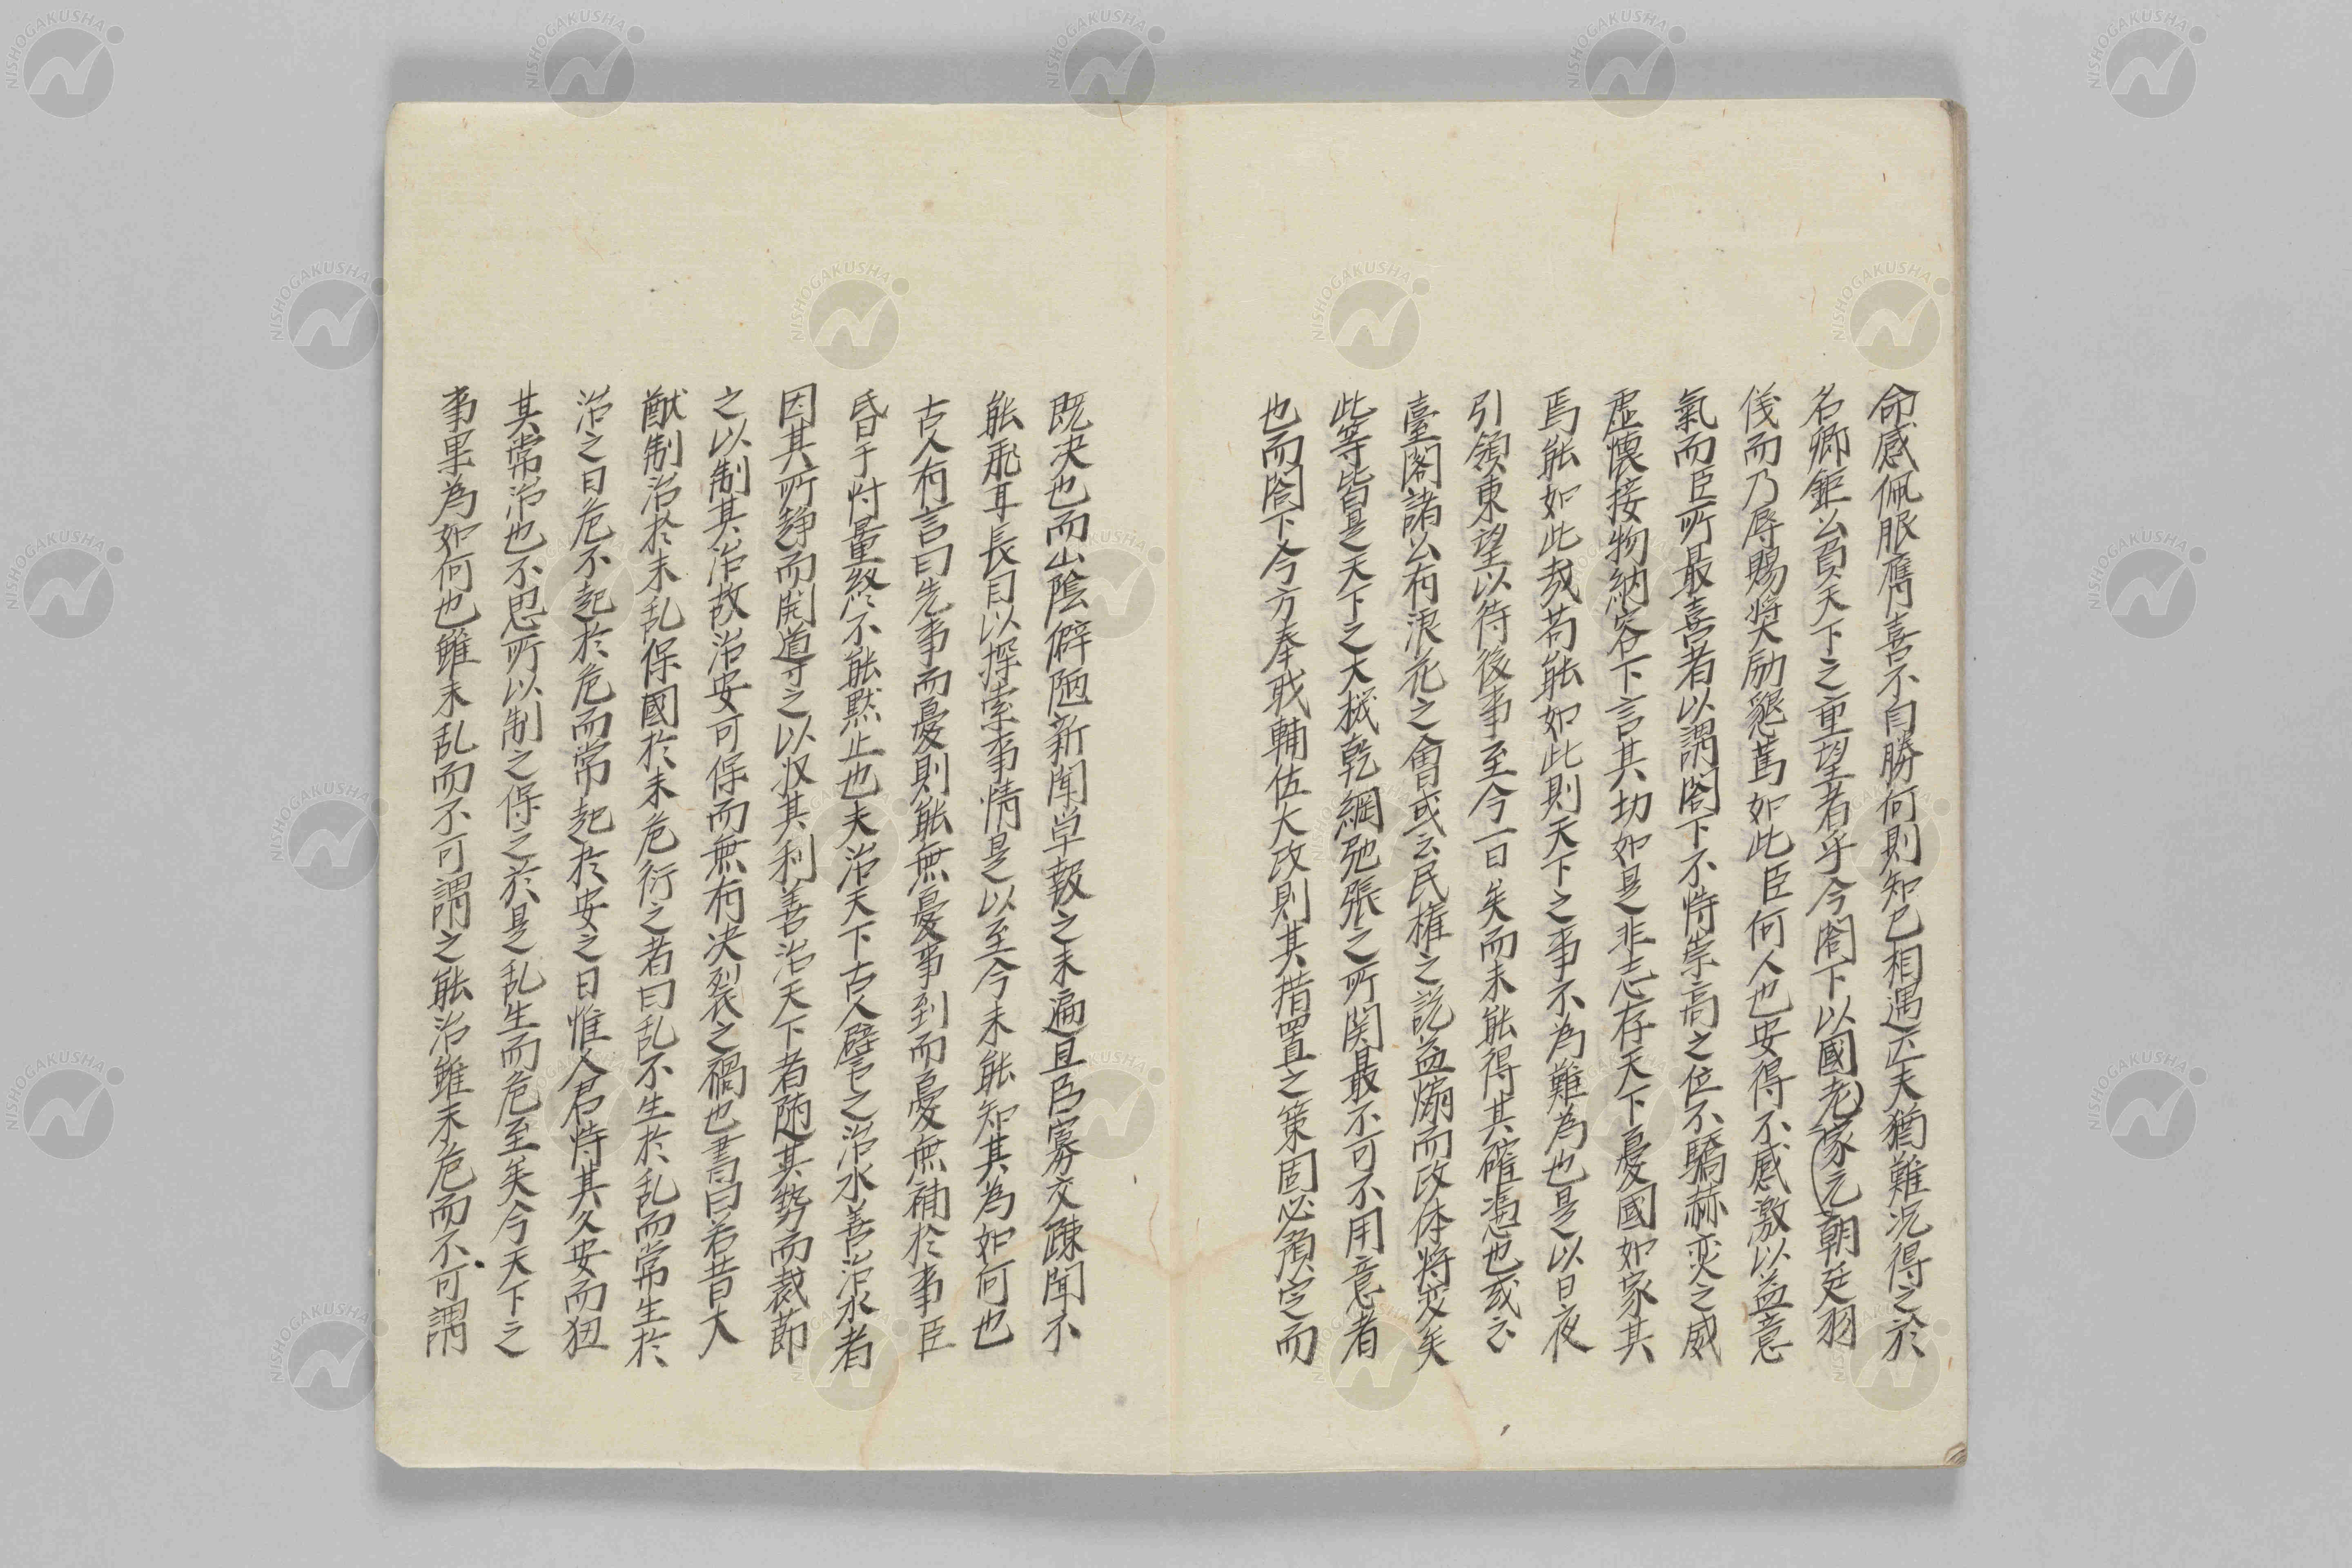 命感佩服膺喜不自勝何則知己相遇匹夫猶難况得之於
名卿鉅公負天下之重望者乎今閣下以國老家元朝廷羽
儀而乃辱賜奬励懇篤如此臣何人也安得不感激以益意
氣而臣所最喜者以謂閣下不恃崇高之位不驕赫奕之威
虚懷接物納容下言其切如是非志存天下憂國如家其
焉能如此哉苟能如此則天下之事不為難為也是以日夜
引領東望以待後事至今一日矣而未能得其確憑也或云
臺閣諸公有浪花之會或云民権之説益煽而政体将変矣
此等皆是天下之大機乾綱弛張之所関最不可不用意者
也而閣下今方奉戢輔佐大政則其措置之策固必預定而
既决也而山陰僻陋新聞単報之未遍且臣寡交疎聞不
能飛耳長目以探索事情是以至今未能知其為如何也
古人有言曰先事而憂則能無憂事到而憂無補於事臣
昏于忖量終不能黙止也夫治天下古人譬之治水善治水者
因其所趨而開導之以収其利善治天下者随其勢而裁節
之以制其治故治安可保而無有决裂之禍也書曰若昔大
猷制治於未乱保國於未危衍之者曰乱不生於乱而常生於
治之日危不起於危而常起於安之日惟人君恃其久安而狃
其常治也不思所以制之保之於是乱生而危至矣今天下之
事果為如何也雖未乱而不可謂之能治雖未危而不可謂
NISHOGAKUSHA